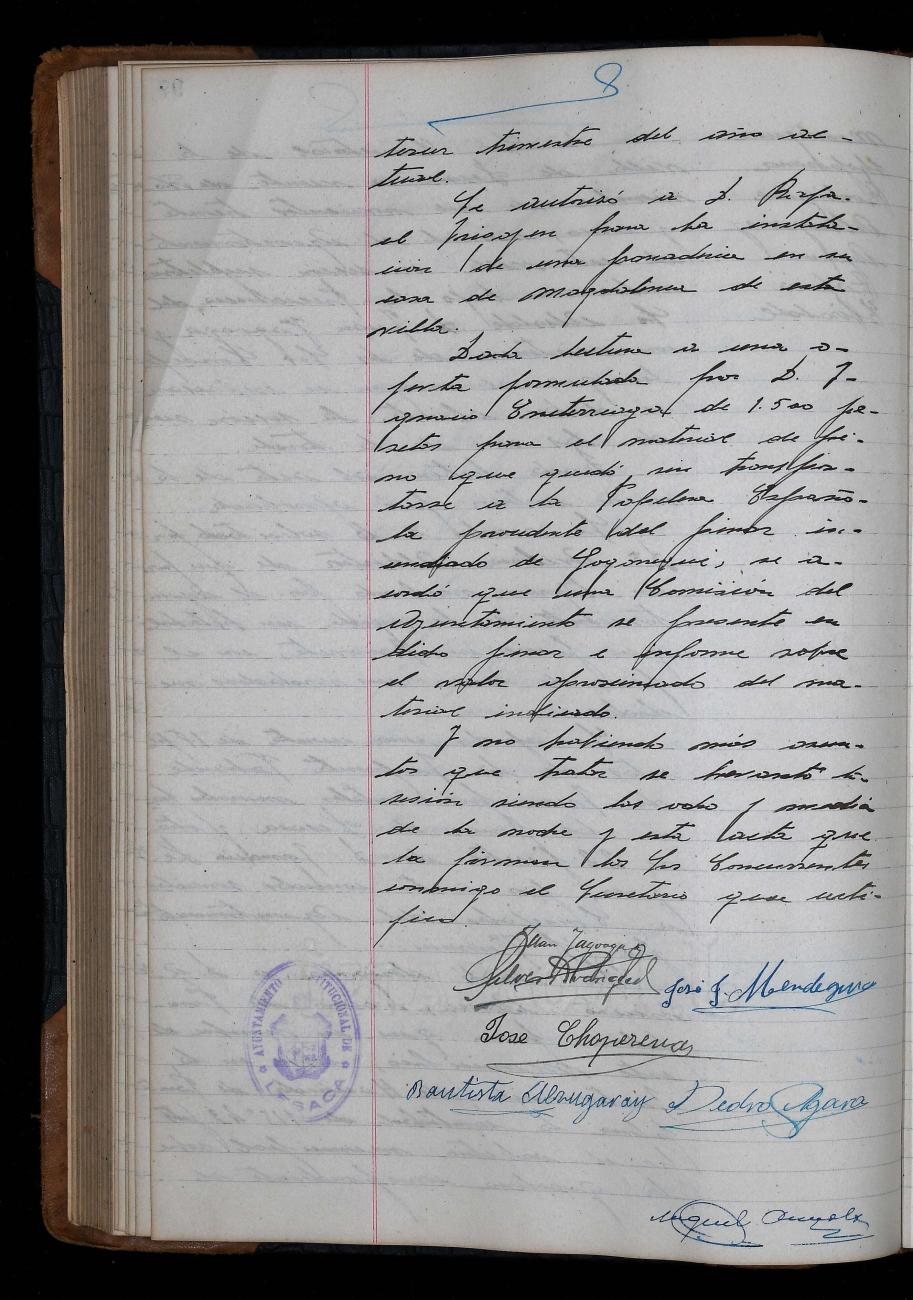 tercer trimestre del año ac-
tual.
Se autorizó a D. Rafa-
el para la instala-
ción de una panadería en su
casa de Magdalenea de esta
villa.
Dada lectura a una o-
ferta formulada por D. I-
gnacio de 1.500 pe-
setas para el material de pi-
no que quedó sin transpor-
tarse a la Papelera Españo-
la procedente del pinar in-
cendiado de se a-
cordó que una Comisión del
Ayuntamiento se presente en
dicho pinar e informe sobre
el valor aproximado del ma-
terial indicado.
Y no habiendo más asun-
tos que tratar se levantó la
sesión siendo las ocho y media
de la noche y esta acta que
la firman los Srs Concurrentes
conmigo el Secretario que certi-
fico
Juan
José J. Mendeguia
Jose Choperena
Bautista
Pedro
Miguel
AYUNTAMIENTO CONSTITUCIONAL DE
LESACA